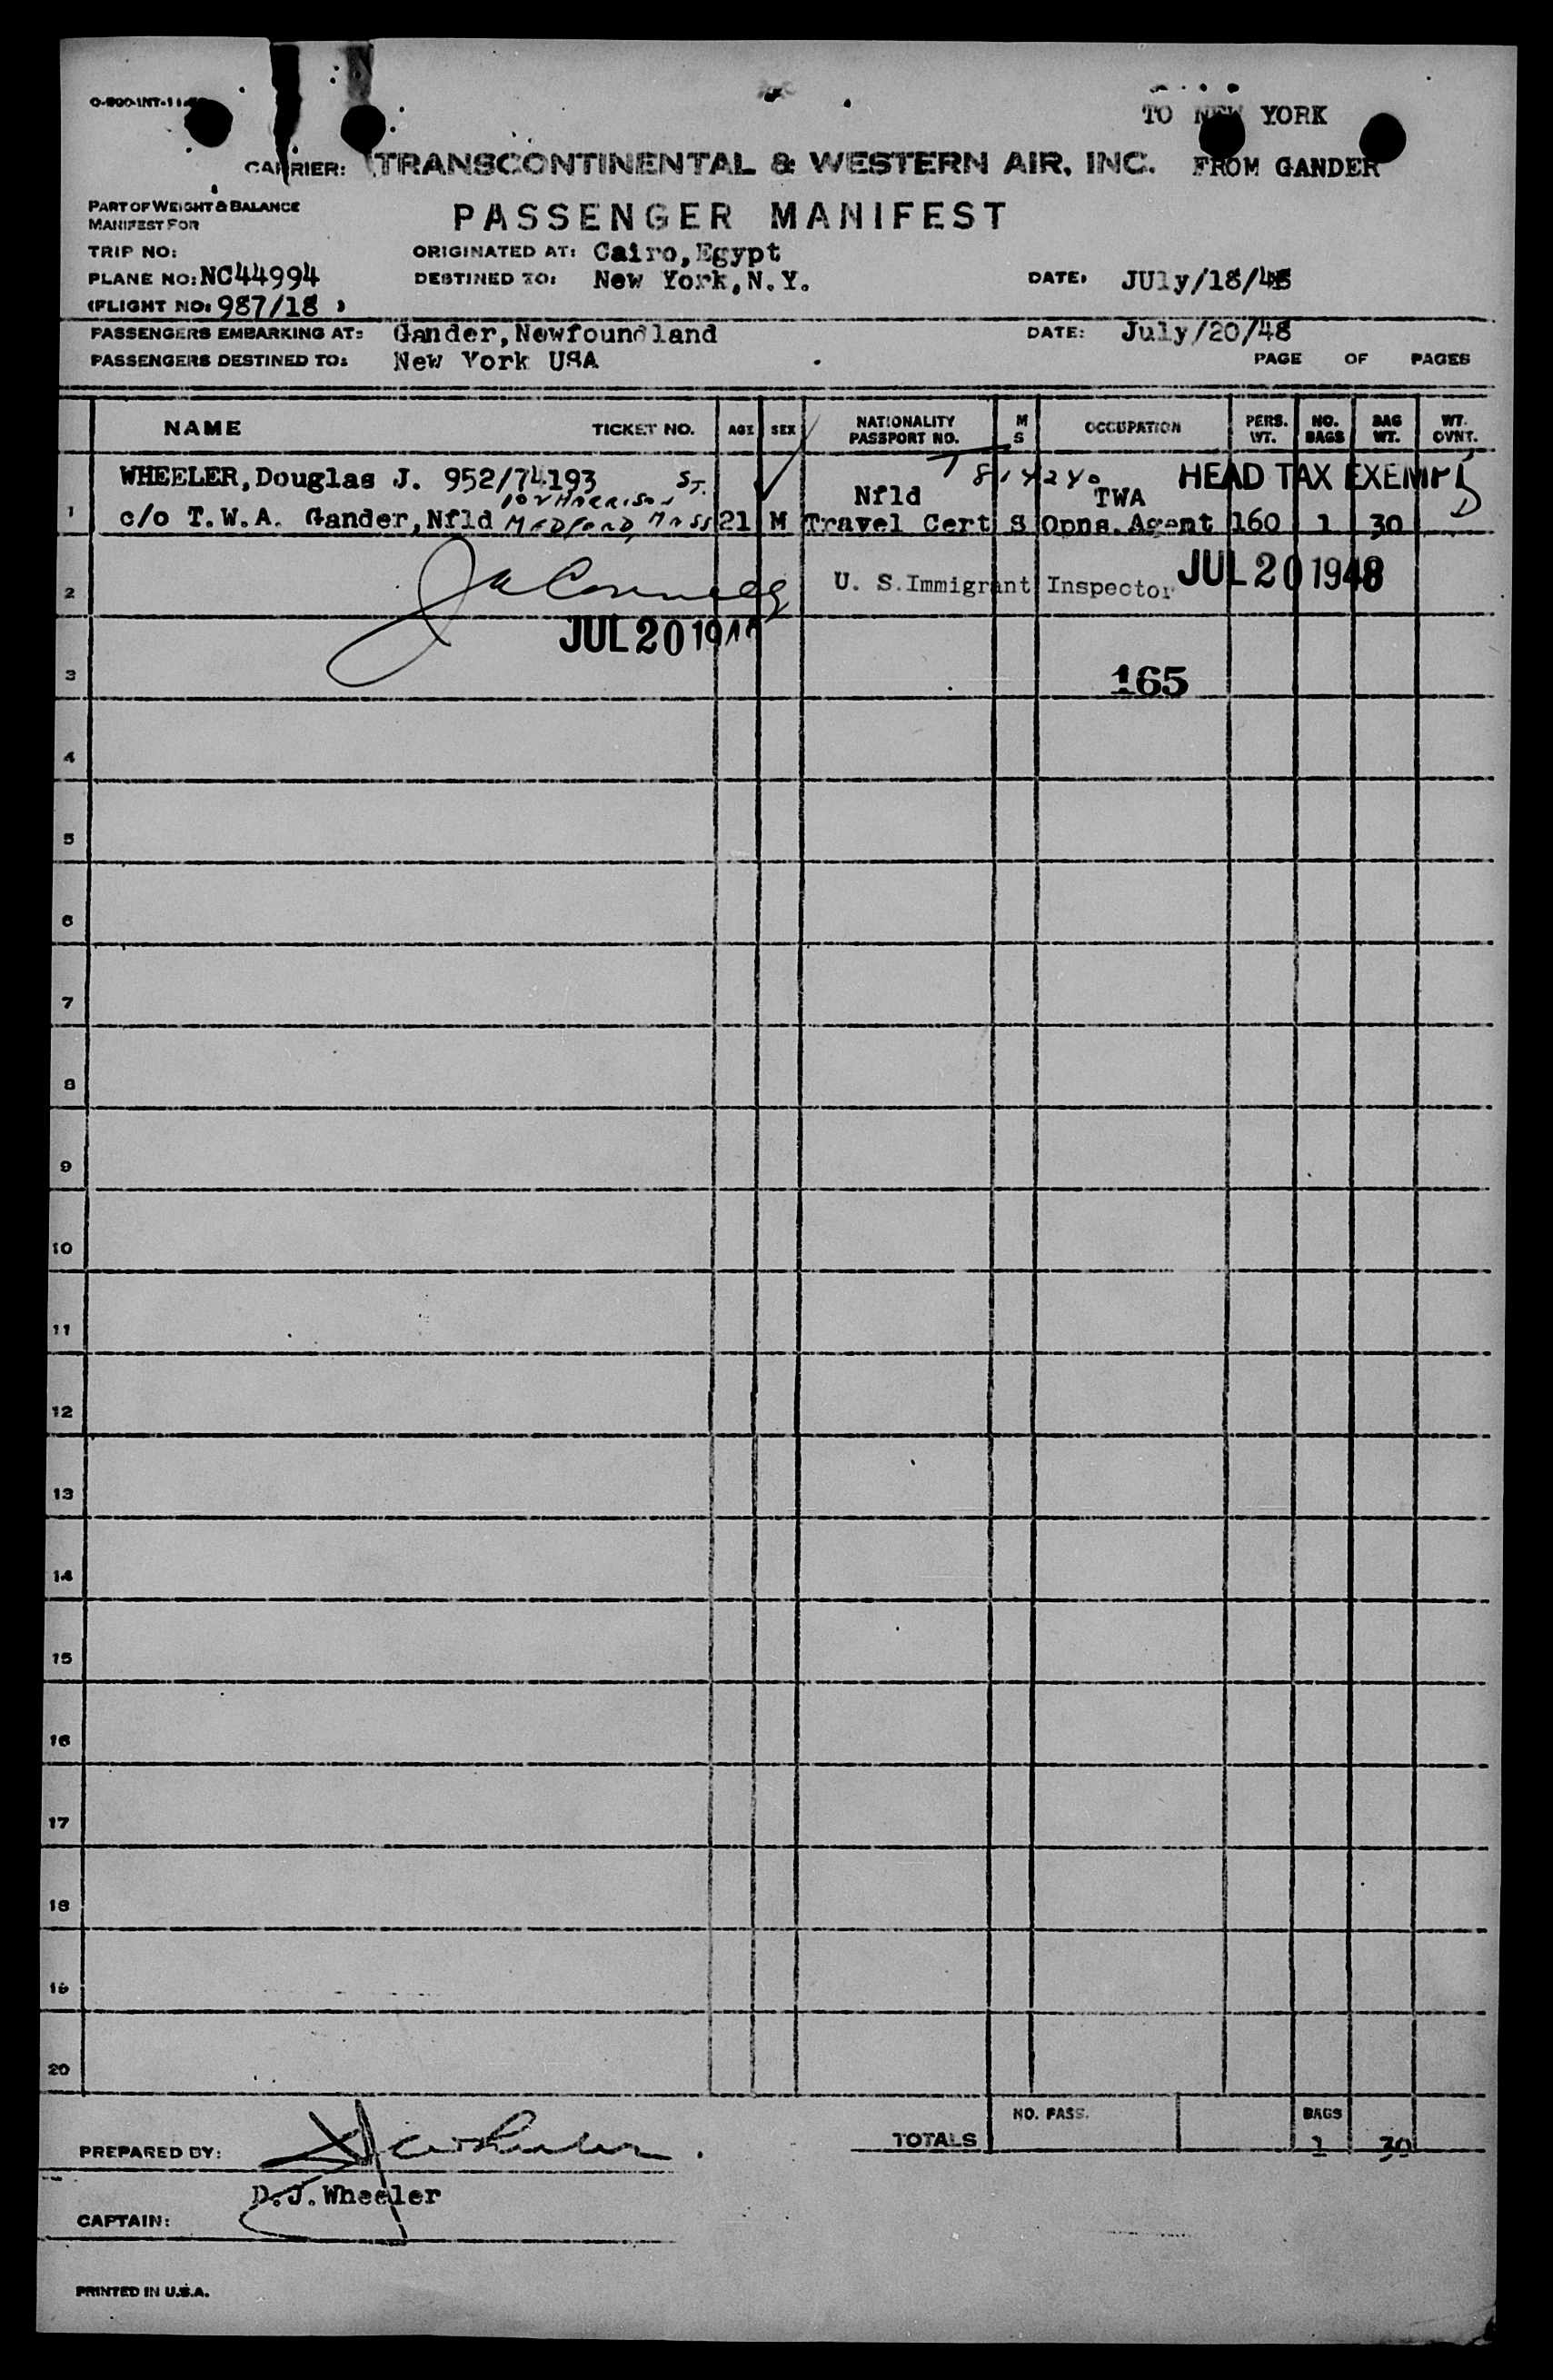 TO NEW YORK
CARRIER: TRANSCONTINENTAL & WESTERN AIR, INC. FROM GANDER
PART OF WEIGHT & BALANCE
MANIFEST FOR
PASSENGER MANIFEST
TRIP NO: ORIGINATED AT: Cairo,Egypt
PLANE NO: NC44994 DESTINED TO: New York,N.Y. DATE: JUly/18/48
(FLIGHT NO: 987/18 )
PASSENGERS EMBARKING AT: Gander,Newfoundland DATE: July/20/48
PASSENGERS DESTINED TO: New York USA PAGE OF PAGES
NAME TICKET NO. AGE SEX NATIONALITY PASSPORT NO. M S OCCUPATION PERS. WT. NO. BAGS BAG WT. WT. OVNT.
WHEELER,Douglas J. 952/74193 ST. Nfld TWA HEAD TAX EXEMPT
HARRISON
1 c/o T.W.A. Gander,Nfld MEDFORD, MASS 21 M Travel Cert S Opns.Agent 160 1 30
2 U. S.Immigrant Inspector JUL 20 1948
JUL 20
3 165
4
5
6
7
8
9
10
11
12
13
14
15
16
17
18
19
20
NO. PASS. BAGS
PREPARED BY: TOTALS 1 30
D.J.Wheeler
CAPTAIN:
PRINTED IN U.S.A.